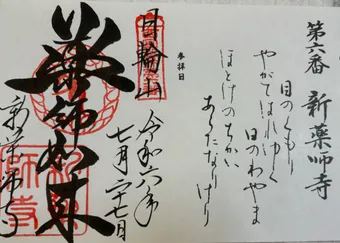 第六番 新薬師寺
目のくもり
やがてはれゆく
日のわやま
ほとけのちかい
あらたなりけり
参拝日
令和六年
七月二十七日
日輪山
薬師如来
新薬師寺